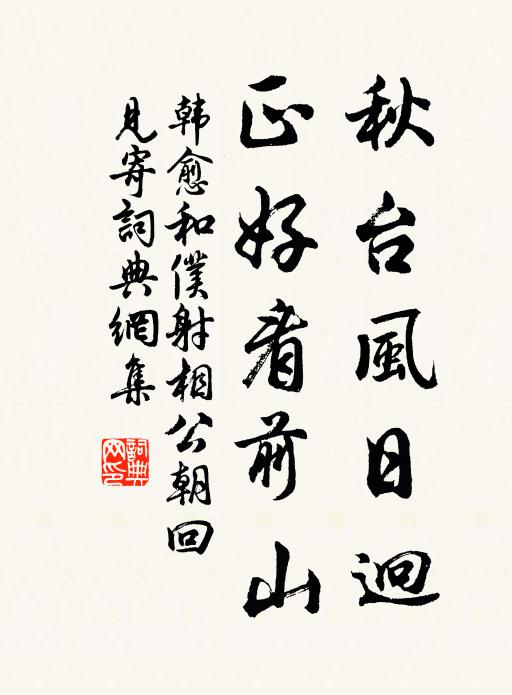 秋台風日迥
正好看前山
韩愈和僕射相公朝回
見寄詞典網集
詞典网印